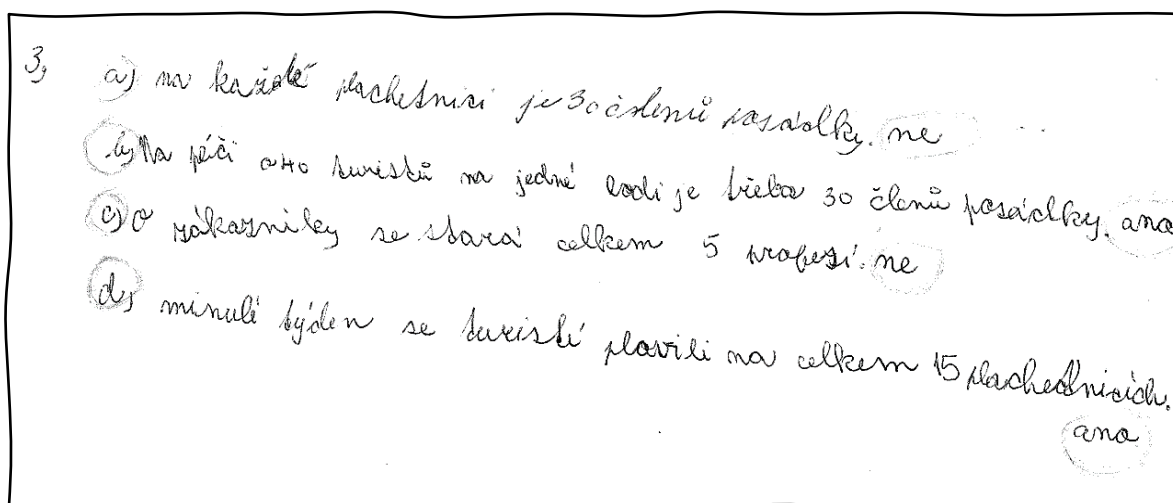 3, a) na každé plachetnici je 30 členů posádky. ne
b) Na péči o 40 turistů na jedné lodi je třeba 30 členů posádky. ano
c) O zákazníky se stará celkem 5 profesí. ne
d) minulí týden se turisté plavili na celkem 15 plachetnicích.
ano